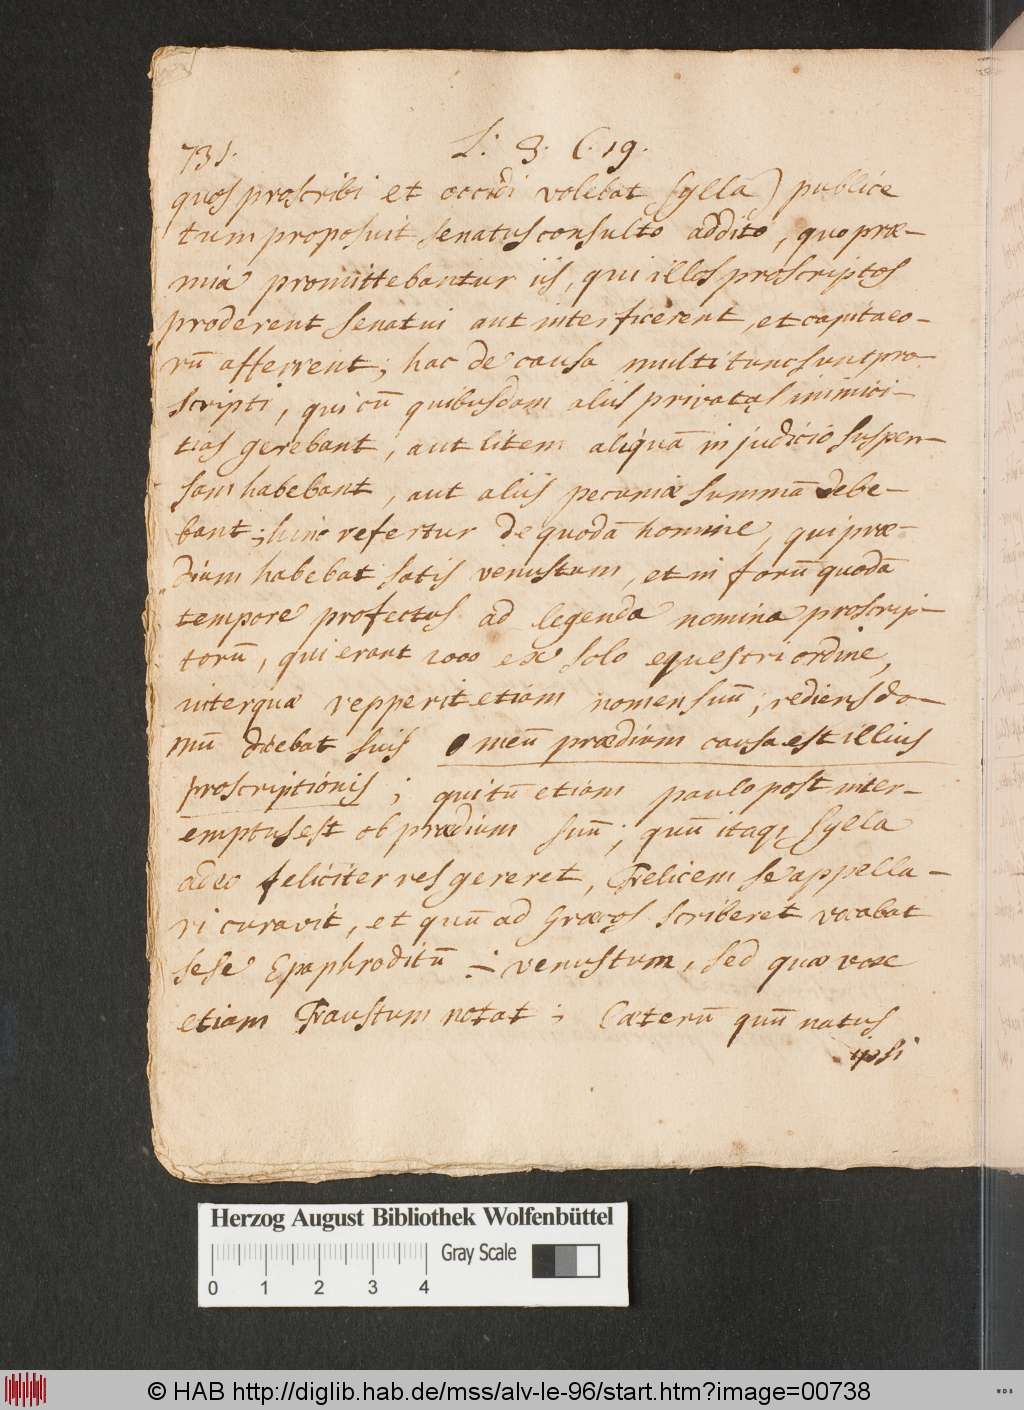 731.
L. 3. C. 19.
quos proscribi et occidi volebat Sylla) publice
tum proposuit senatusconsulto addito, quo præ-
mia promittebantur iis, qui illos proscriptos
proderent senatui aut interficerent, et capita eo-
rū afferrent; hac de causa multi tunc sunt pro-
scripti, qui cū quibusdam aliis privatas inimici-
tias gerebant, aut litem aliquā in judicio suspen-
sam habebant, aut aliis pecuniæ summā debe-
bant; hinc refertur de quodā homine, qui præ-
dium habebat satis venustum, et in forū quodā
tempore profectus ad legenda nomina proscrip-
torū, qui erant 2000 ex solo equestri ordine,
inter quæ repperit etiam nomen suū; rediens do-
mū dicebat suis O meū prædium causa est illius
proscriptionis; qui tū etiam paulo post inter-
emptus est ob prædium suū; quū itaq; Sylla
adeo feliciter res gereret, Felicem se appella-
ri curavit, et quū ad Græcos scriberet vocabat
sese Epaphroditū ÷ venustum, sed quæ vox
etiam Faustum notat; Cæterū quū natus
ipsi
Herzog August Bibliothek Wolfenbüttel
Gray Scale
0 1 2 3 4
© HAB http://diglib.hab.de/mss/alv-le-96/start.htm?image=00738